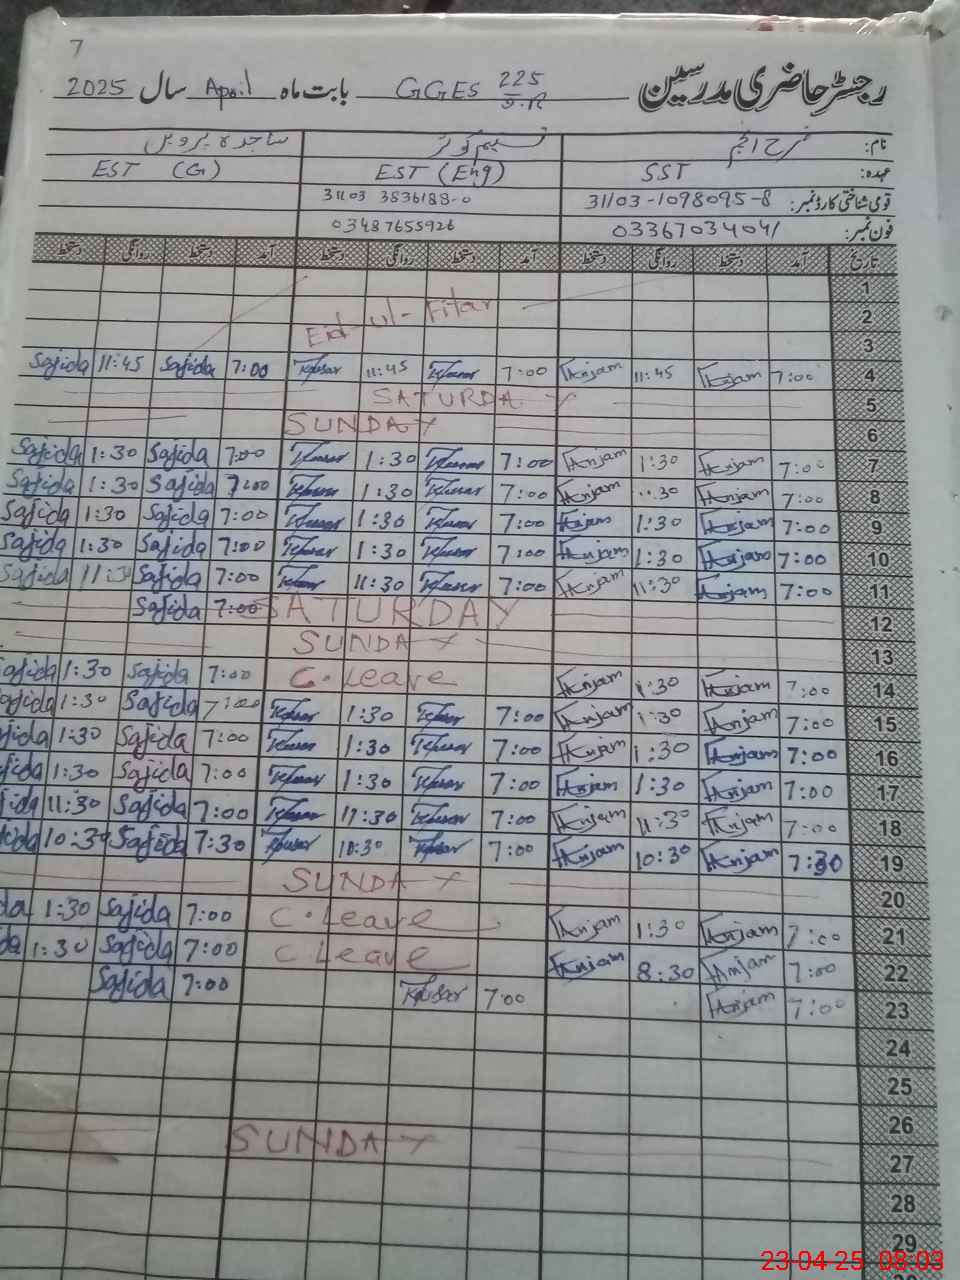 7
رجسٹر حاضری مدرسین GGES 225 9.R بابت ماہ April سال 2025
نام: فرح انجم نسیم کوثر ساجدہ پروین
عہدہ: SST EST (Eng) EST (G)
قومی شناختی کارڈ نمبر: 31103-1098095-8 31103 3836188-0
فون نمبر: 03367034041 03487655926
تاریخ آمد دستخط روانگی دستخط آمد دستخط روانگی دستخط آمد دستخط روانگی دستخط
1
2 Eid-ul-Fitar
3
Sajida 11:45 Sajida 7:00 Kousar 11:45 Kousar 7:00 Anjam 11:45 Anjam 7:00 4
SATURDAY 5
SUNDAY 6
Sajida 1:30 Sajida 7:00 Kousar 1:30 Kousar 7:00 Anjam 1:30 Anjam 7:00 7
Sajida 1:30 Sajida 7:00 Kousar 1:30 Kousar 7:00 Anjam 1:30 Anjam 7:00 8
Sajida 1:30 Sajida 7:00 Kousar 1:30 Kousar 7:00 Anjam 1:30 Anjam 7:00 9
Sajida 1:30 Sajida 7:00 Kousar 1:30 Kousar 7:00 Anjam 1:30 Anjam 7:00 10
Sajida 11:30 Sajida 7:00 Kousar 11:30 Kousar 7:00 Anjam 11:30 Anjam 7:00 11
Sajida 7:00 SATURDAY 12
SUNDAY 13
Sajida 1:30 Sajida 7:00 C.Leave Anjam 1:30 Anjam 7:00 14
Sajida 1:30 Sajida 7:00 Kousar 1:30 Kousar 7:00 Anjam 1:30 Anjam 7:00 15
jida 1:30 Sajida 7:00 Kousar 1:30 Kousar 7:00 Anjam 1:30 Anjam 7:00 16
jida 1:30 Sajida 7:00 Kousar 1:30 Kousar 7:00 Anjam 1:30 Anjam 7:00 17
jida 11:30 Sajida 7:00 Kousar 11:30 Kousar 7:00 Anjam 11:30 Anjam 7:00 18
jida 10:30 Sajida 7:30 Kousar 10:30 Kousar 7:00 Anjam 10:30 Anjam 7:30 19
SUNDAY 20
da 1:30 Sajida 7:00 C.Leave Anjam 1:30 Anjam 7:00 21
da 1:30 Sajida 7:00 C Leave Anjam 8:30 Anjam 7:00 22
Sajida 7:00 Kousar 7:00 Anjam 7:00 23
24
25
26
SUNDAY 27
28
29
23-04-25 08:03